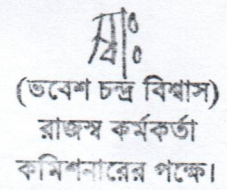 স্বাঃ
(ভবেশ চন্দ্র বিশ্বাস)
রাজস্ব কর্মকর্তা
কমিশনারের পক্ষে।